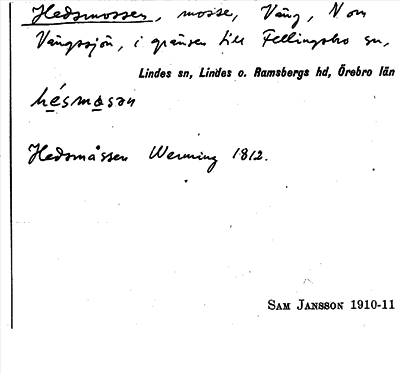 Hedsmossen, mosse, Väng, N om
Vängssjön, i gränsen till Fellingsbro sn,
Lindes sn, Lindes o. Ramsbergs hd, Örebro län
hésmasan
Hedsmåssen Werming 1812.
SAM JANSSON 1910-11